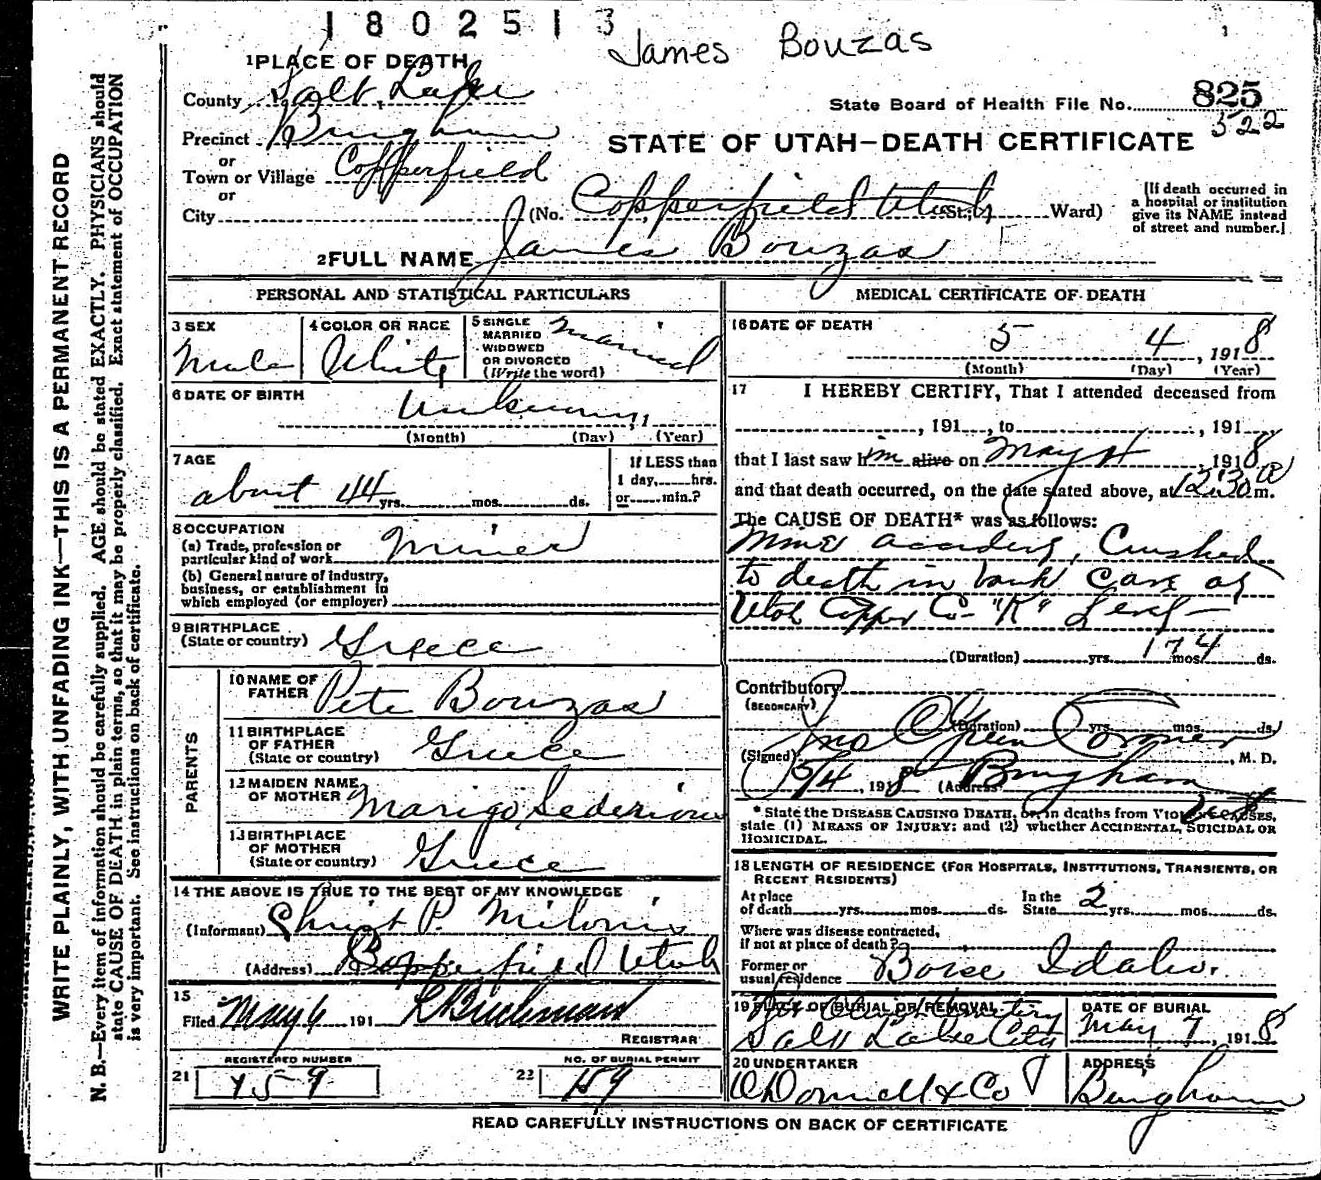 1802513
James Bouzas
1 PLACE OF DEATH
County Salt Lake
State Board of Health File No. 825
522
Precinct Bingham
STATE OF UTAH—DEATH CERTIFICATE
or
Town or Village Copperfield
or
City (No. Copperfield Utah St.; Ward)
[If death occurred in
a hospital or institution
give its NAME instead
of street and number.]
2 FULL NAME James Bouzas
PERSONAL AND STATISTICAL PARTICULARS
3 SEX
Male
4 COLOR OR RACE
White
5 SINGLE
MARRIED
WIDOWED
OR DIVORCED
(Write the word)
Married
6 DATE OF BIRTH
Unknown
(Month) (Day) (Year)
7 AGE
about 44 yrs. mos. ds.
If LESS than
1 day, hrs.
or min.?
8 OCCUPATION
(a) Trade, profession or
particular kind of work Miner
(b) General nature of industry,
business, or establishment in
which employed (or employer)
9 BIRTHPLACE
(State or country) Greece
PARENTS
10 NAME OF
FATHER Pete Bouzas
11 BIRTHPLACE
OF FATHER
(State or country) Greece
12 MAIDEN NAME
OF MOTHER Marigo
13 BIRTHPLACE
OF MOTHER
(State or country) Greece
14 THE ABOVE IS TRUE TO THE BEST OF MY KNOWLEDGE
(Informant) Christ P. Milonis
(Address) Copperfield Utah
15
Filed May 6 191
REGISTRAR
REGISTERED NUMBER
21
NO. OF BURIAL PERMIT
22 159
MEDICAL CERTIFICATE OF DEATH
16 DATE OF DEATH
5 4, 1918
(Month) (Day) (Year)
17 I HEREBY CERTIFY, That I attended deceased from
, 191 , to , 191
that I last saw him alive on May 4 1918
and that death occurred, on the date stated above, at 12:30 a m.
The CAUSE OF DEATH* was as follows:
Mine accident, Crushed
to death in bank cave at
Utah Copper Co "K" Level
(Duration) yrs. mos. ds.
174
Contributory
(SECONDARY)
(Duration) yrs. mos. ds.
(Signed) Coroner, M. D.
5/4, 1918 (Address) Bingham
Utah
* State the DISEASE CAUSING DEATH, or, in deaths from VIOLENT CAUSES,
state (1) MEANS OF INJURY; and (2) whether ACCIDENTAL, SUICIDAL OR
HOMICIDAL.
18 LENGTH OF RESIDENCE (FOR HOSPITALS, INSTITUTIONS, TRANSIENTS, OR
RECENT RESIDENTS)
At place
of death yrs. mos. ds.
In the
State 2 yrs. mos. ds.
Where was disease contracted,
if not at place of death?
Former or
usual residence Boise Idaho.
19 PLACE OF BURIAL OR REMOVAL
Mt Olivet Cemetery
Salt Lake City
DATE OF BURIAL
May 7, 1918
20 UNDERTAKER
O'Donnell & Co
ADDRESS
Bingham
READ CAREFULLY INSTRUCTIONS ON BACK OF CERTIFICATE
WRITE PLAINLY, WITH UNFADING INK—THIS IS A PERMANENT RECORD
N. B.—Every item of information should be carefully supplied. AGE should be stated EXACTLY. PHYSICIANS should
state CAUSE OF DEATH in plain terms, so that it may be properly classified. Exact statement of OCCUPATION
is very important. See instructions on back of certificate.